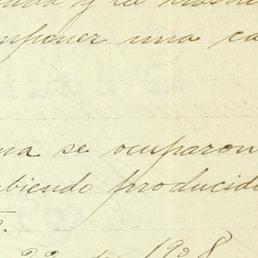 y la
mponer una ca
na se ocuparon
biendo producid
22 de 1928